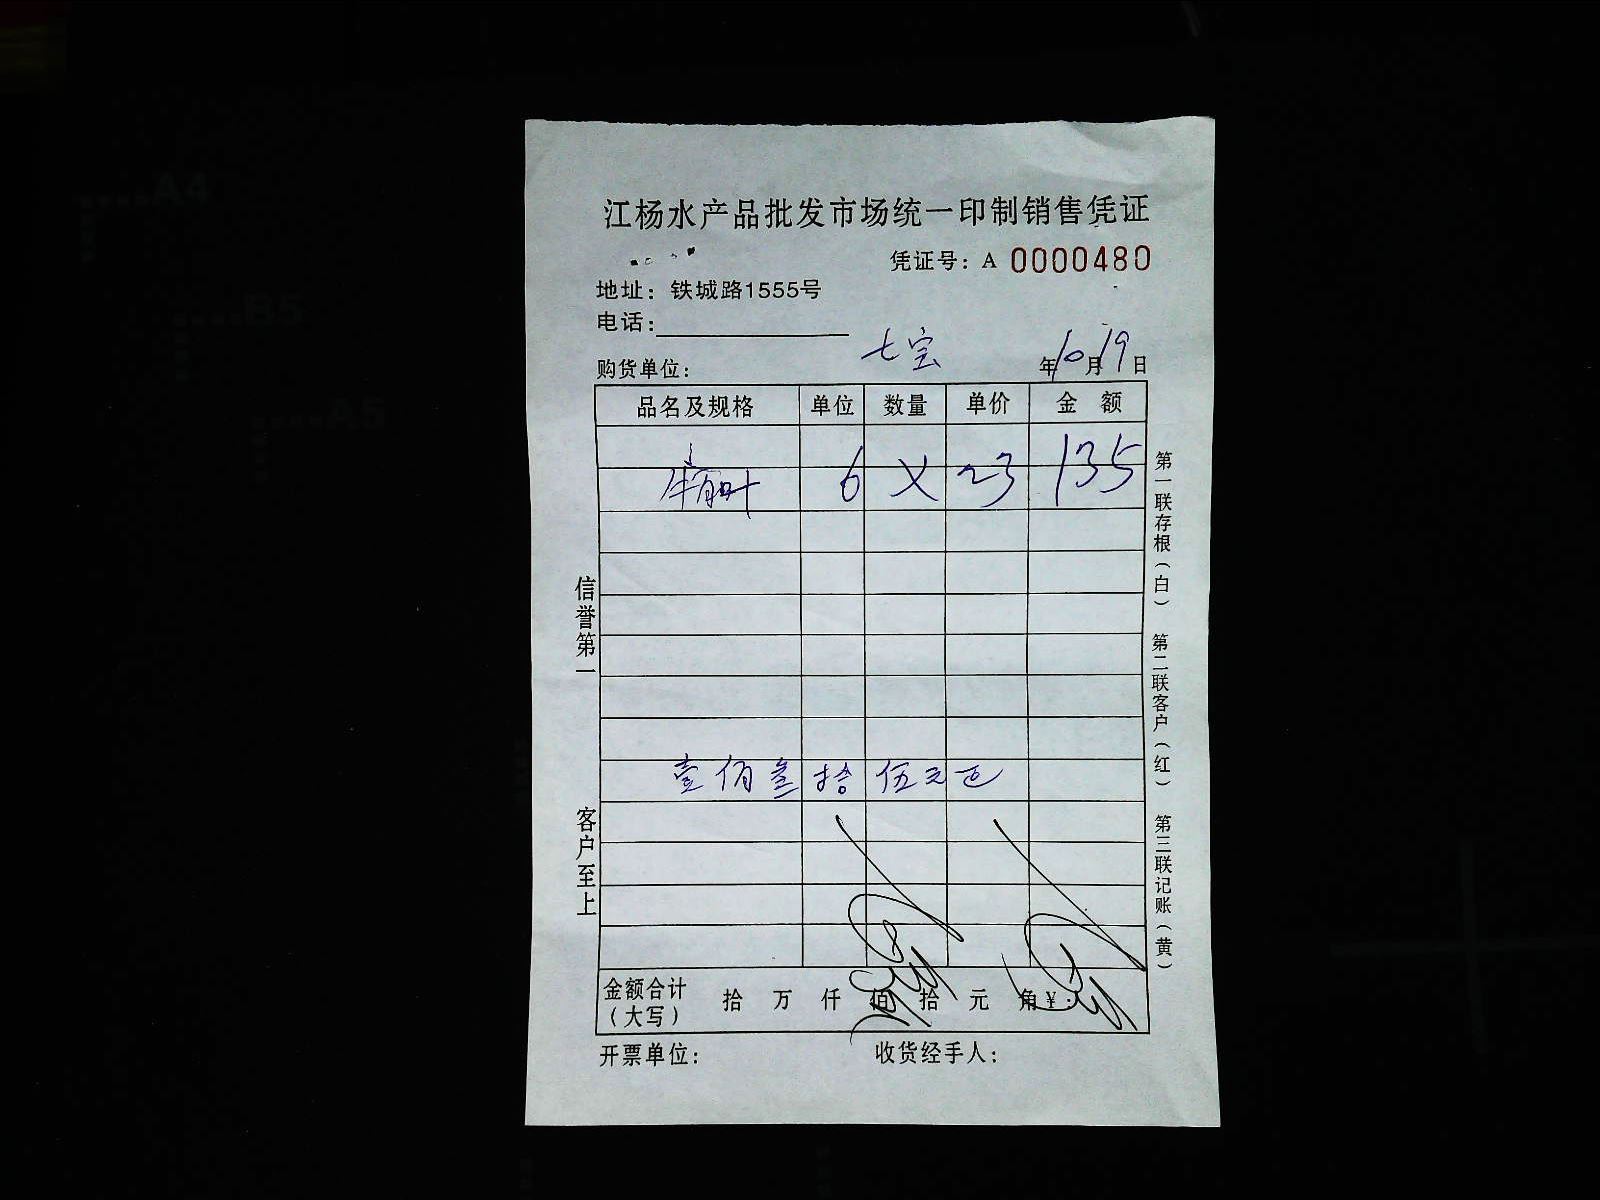 江杨水产品批发市场统一印制销售凭证
凭证号：A 0000480
地址：铁城路1555号
电话：
七宝
购货单位： 年10月19日
品名及规格 单位 数量 单价 金 额
牛肚叶 6 X 23 135
壹佰叁拾伍元
金额合计（大写） 拾 万 仟 佰 拾 元 角 ¥：
开票单位： 收货经手人：
信誉第一
客户至上
第一联存根（白）
第二联客户（红）
第三联记账（黄）
A4
B5
A5